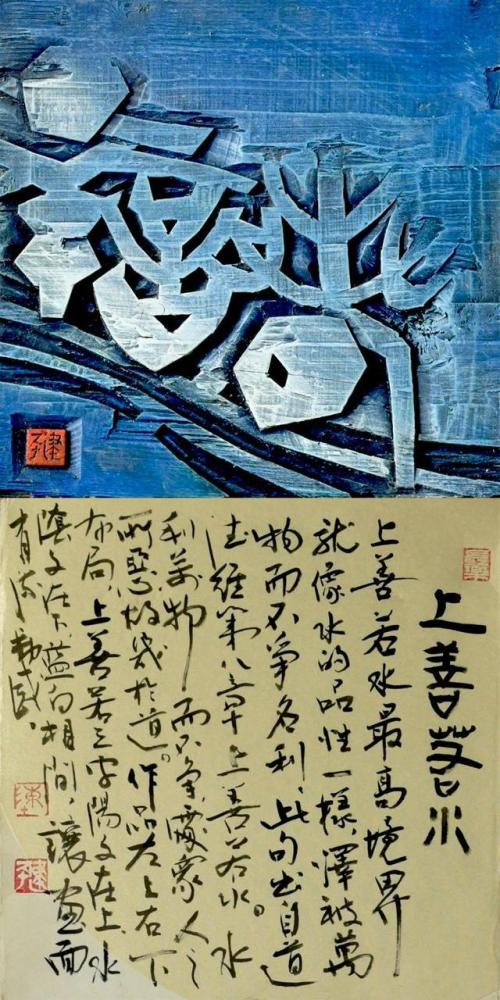 上善若水
上善若水最高境界
就像水的品性一樣,澤被萬
物而不爭名利,此句出自道
德经第八章上善若水。水
利萬物而不爭,處衆人之
所惡,故幾於道。作品左上右下
布局,上善若三字陽文在上,水
陰文在下,藍白相間,讓畫面
有流動感。